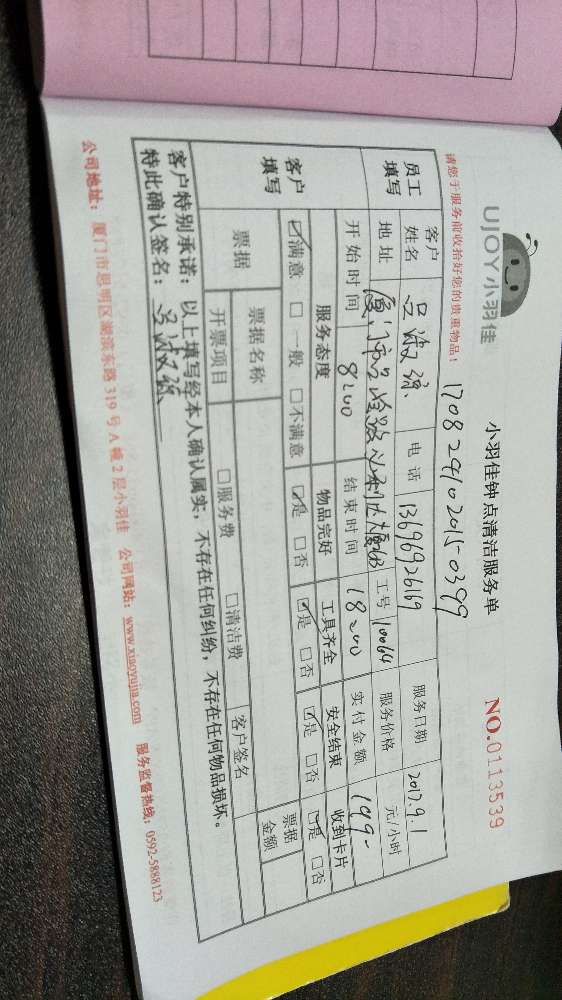 UJOY小羽佳
小羽佳钟点清洁服务单
NO.0113539
请您于服务前收拾好您的贵重物品!
1708291020150399
员工填写
客户姓名
电话 13696926169
服务日期 2017.9.1
地址
工号 10064
服务价格 元/小时
开始时间 8:00
结束时间 18:00
实付金额 199-
客户填写
服务态度 物品完好 工具齐全 安全结束 收到卡片
☑满意 □一般 □不满意 ☑是 □否 ☑是 □否 ☑是 □否 ☑是 □否
票据
票据名称
客户签名
票据金额
开票项目 □服务费 □清洁费
客户特别承诺: 以上填写经本人确认属实,不存在任何纠纷,不存在任何物品损坏。
特此确认签名:
公司地址: 厦门市思明区湖滨东路319号A幢2层小羽佳 公司网站: www.xiaoyujia.com 服务监督热线: 0592-5888123